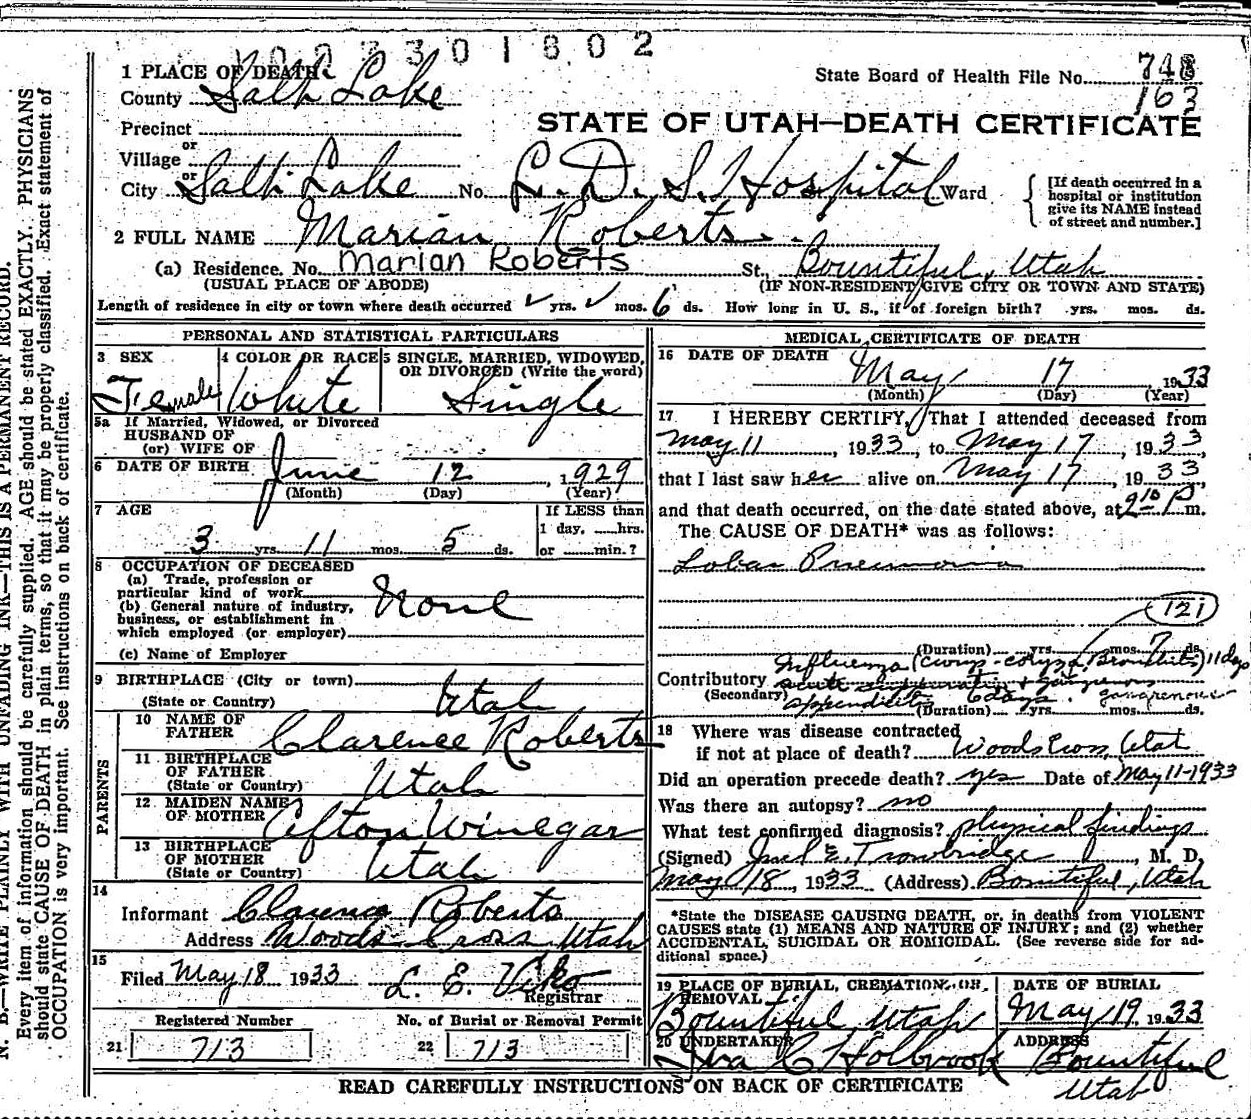 N. B.—WRITE PLAINLY WITH UNFADING INK—THIS IS A PERMANENT RECORD.
Every item of information should be carefully supplied. AGE should be stated EXACTLY. PHYSICIANS
should state CAUSE OF DEATH in plain terms, so that it may be properly classified. Exact statement of
OCCUPATION is very important. See instructions on back of certificate.
1 PLACE OF DEATH
County Salt Lake
State Board of Health File No. 748
163
STATE OF UTAH—DEATH CERTIFICATE
Precinct
or
Village
or
City Salt Lake No. L. D. S. Hospital Ward
[If death occurred in a
hospital or institution
give its NAME instead
of street and number.]
2 FULL NAME Marian Roberts
(a) Residence. No. Marian Roberts St., Bountiful, Utah
(USUAL PLACE OF ABODE) (IF NON-RESIDENT GIVE CITY OR TOWN AND STATE)
Length of residence in city or town where death occurred yrs. mos. 6 ds. How long in U. S., if of foreign birth? yrs. mos. ds.
PERSONAL AND STATISTICAL PARTICULARS
3 SEX
Female
4 COLOR OR RACE
White
5 SINGLE, MARRIED, WIDOWED,
OR DIVORCED (Write the word)
Single
5a If Married, Widowed, or Divorced
HUSBAND OF
(or) WIFE OF
6 DATE OF BIRTH June 12, 1929
(Month) (Day) (Year)
7 AGE
3 yrs. 11 mos. 5 ds.
If LESS than
1 day, hrs.
or min.?
8 OCCUPATION OF DECEASED
(a) Trade, profession or
particular kind of work
(b) General nature of industry,
business, or establishment in
which employed (or employer)
None
(c) Name of Employer
9 BIRTHPLACE (City or town)
(State or Country) Utah
PARENTS
10 NAME OF
FATHER Clarence Roberts
11 BIRTHPLACE
OF FATHER
(State or Country) Utah
12 MAIDEN NAME
OF MOTHER Afton Winegar
13 BIRTHPLACE
OF MOTHER
(State or Country) Utah
14
Informant Clarence Roberts
Address Woods Cross, Utah
15
Filed May 18 1933 L. E. Viko
Registrar
Registered Number
21 713
No. of Burial or Removal Permit
22 713
MEDICAL CERTIFICATE OF DEATH
16 DATE OF DEATH
May 17 1933
(Month) (Day) (Year)
17 I HEREBY CERTIFY, That I attended deceased from
May 11, 1933, to May 17, 1933,
that I last saw her alive on May 17, 1933,
and that death occurred, on the date stated above, at 9 10 P. m.
The CAUSE OF DEATH* was as follows:
Lobar Pneumonia
121
(Duration) yrs. mos. 7 ds.
Influenza (Bronchitis) 11 days
Contributory
(Secondary) acute & gangrenous
appendicitis 6 days. gangrenous
(Duration) yrs. mos. ds.
18 Where was disease contracted
if not at place of death? Woods Cross, Utah
Did an operation precede death? yes Date of May 11-1933
Was there an autopsy? no
What test confirmed diagnosis? physical findings
(Signed) E. Trowbridge, M. D.
May 18, 1933 (Address) Bountiful, Utah
*State the DISEASE CAUSING DEATH, or, in deaths from VIOLENT
CAUSES state (1) MEANS AND NATURE OF INJURY; and (2) whether
ACCIDENTAL, SUICIDAL OR HOMICIDAL. (See reverse side for ad-
ditional space.)
19 PLACE OF BURIAL, CREMATION, OR
REMOVAL
Bountiful, Utah
DATE OF BURIAL
May 19, 1933
20 UNDERTAKER
Ira C Holbrook
ADDRESS
Bountiful
Utah
READ CAREFULLY INSTRUCTIONS ON BACK OF CERTIFICATE